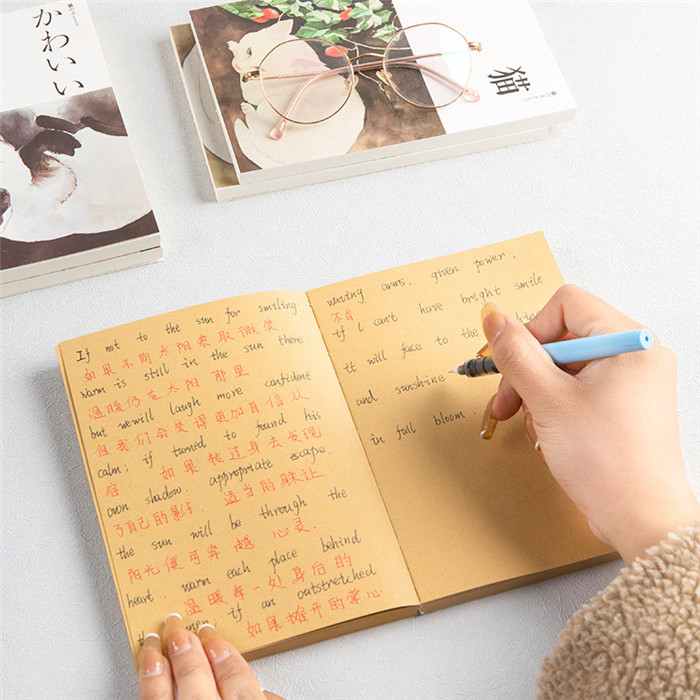 かわいい
猫
If not to the sun for smiling,
如果不向太阳索取微笑
warm is still in the sun there.
温暖仍在太阳 那里
but wewill laugh more confident
但我们会笑得更加自信从
calm; if turned to found his
容 如果转过身去发现
own shadow. appropriate escape.
了自己的影子 适当的躲让
the sun will be through the
阳光便可穿越 心灵.
heart. warm each place behind
温暖每一处身后的
men; if an outstretched
如果摊开的掌心
waving arms. given power;
不自
if I can't have bright smile
it will face to the
and sunshine
in full bloom.